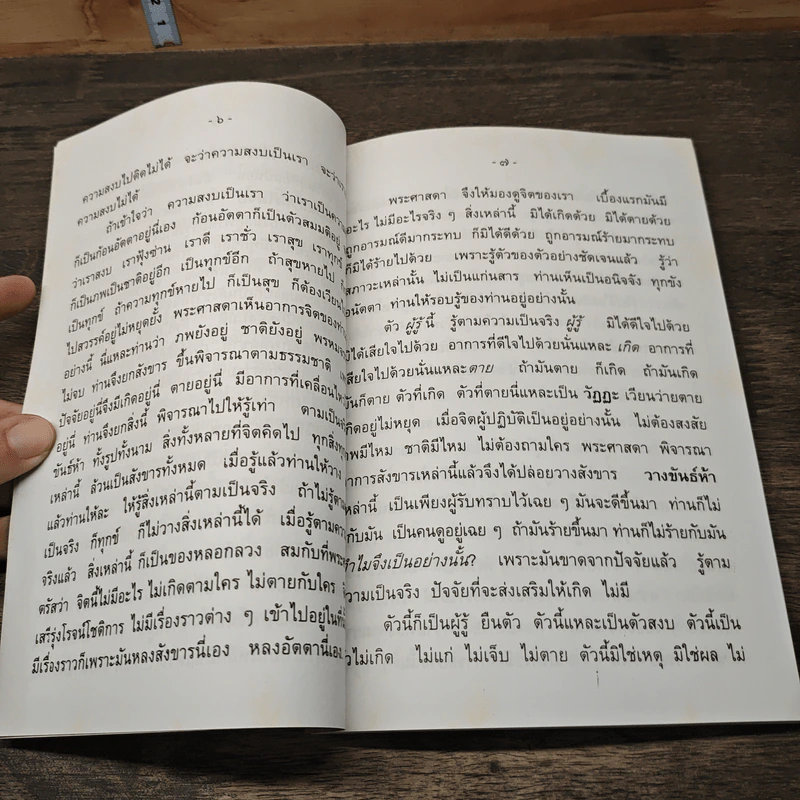 2
1
- ๖ -
ความสงบไปติดไม่ได้ จะว่าความสงบเป็นเรา จะว่าเรา
ความสงบไม่ได้
ถ้าเข้าใจว่า ความสงบเป็นเรา ว่าเราเป็นความ
ก็เป็นก้อนอัตตาอยู่นี่เอง ก้อนอัตตาก็เป็นตัวสมมติอยู่
ว่าเราสงบ เราฟุ้งซ่าน เราดี เราชั่ว เราสุข เราทุกข์
ก็เป็นภพเป็นชาติอยู่อีก เป็นทุกข์อีก ถ้าสุขหายไป ก็
เป็นทุกข์ ถ้าความทุกข์หายไป ก็เป็นสุข ก็ต้องเวียน
ไปสวรรค์อยู่ไม่หยุดยั้ง พระศาสดาเห็นอาการจิตของ
อย่างนี้ นี่แหละท่านว่า ภพยังอยู่ ชาติยังอยู่ พรหม
ไม่จบ ท่านจึงยกสังขาร ขึ้นพิจารณาตามธรรมชาติ
ปัจจัยอยู่นี่จึงมีเกิดอยู่นี่ ตายอยู่นี่ มีอาการที่เคลื่อนไหว
อยู่นี่ ท่านจึงยกสิ่งนี้ พิจารณาไปให้รู้เท่า ตามเป็น
ขันธ์ห้า ทั้งรูปทั้งนาม สิ่งทั้งหลายที่จิตคิดไป ทุกสิ่ง
เหล่านี้ ล้วนเป็นสังขารทั้งหมด เมื่อรู้แล้วท่านให้วาง
แล้วท่านให้ละ ให้รู้สิ่งเหล่านี้ตามเป็นจริง ถ้าไม่รู้ตาม
เป็นจริง ก็ทุกข์ ก็ไม่วางสิ่งเหล่านี้ได้ เมื่อรู้ตาม
จริงแล้ว สิ่งเหล่านี้ ก็เป็นของหลอกลวง สมกับที่พระ
ตรัสว่า จิตนี้ไม่มีอะไร ไม่เกิดตามใคร ไม่ตายกับใคร
เสรีรุ่งโรจน์โชติการ ไม่มีเรื่องราวต่าง ๆ เข้าไปอยู่ในที่
มีเรื่องราวก็เพราะมันหลงสังขารนี่เอง หลงอัตตานี่เอง
- ๗ -
พระศาสดา จึงให้มองดูจิตของเรา เบื้องแรกมันมี
อะไร ไม่มีอะไรจริง ๆ สิ่งเหล่านี้ มิได้เกิดด้วย มิได้ตายด้วย
ถูกอารมณ์ดีมากระทบ ก็มิได้ดีด้วย ถูกอารมณ์ร้ายมากระทบ
ก็มิได้ร้ายไปด้วย เพราะรู้ตัวของตัวอย่างชัดเจนแล้ว รู้ว่า
สภาวะเหล่านั้น ไม่เป็นแก่นสาร ท่านเห็นเป็นอนิจจัง ทุกขัง
อนัตตา ท่านให้รอบรู้ของท่านอยู่อย่างนั้น
ตัว ผู้รู้ นี้ รู้ตามความเป็นจริง ผู้รู้ มิได้ดีใจไปด้วย
มิได้เสียใจไปด้วย อาการที่ดีใจไปด้วยนั่นแหละ เกิด อาการที่
เสียใจไปด้วยนั่นแหละ ตาย ถ้ามันตาย ก็เกิด ถ้ามันเกิด
มันก็ตาย ตัวที่เกิด ตัวที่ตายนี่แหละเป็น วัฏฏะ เวียนว่ายตาย
เกิดอยู่ไม่หยุด เมื่อจิตผู้ปฏิบัติเป็นอยู่อย่างนั้น ไม่ต้องสงสัย
ภพมีไหม ชาติมีไหม ไม่ต้องถามใคร พระศาสดา พิจารณา
อาการสังขารเหล่านี้แล้วจึงได้ปล่อยวางสังขาร วางขันธ์ห้า
เหล่านี้ เป็นเพียงผู้รับทราบไว้เฉย ๆ มันจะดีขึ้นมา ท่านก็ไม่
กับมัน เป็นคนดูอยู่เฉย ๆ ถ้ามันร้ายขึ้นมา ท่านก็ไม่ร้ายกับมัน
ทำไมจึงเป็นอย่างนั้น? เพราะมันขาดจากปัจจัยแล้ว รู้ตาม
ความเป็นจริง ปัจจัยที่จะส่งเสริมให้เกิด ไม่มี
ตัวนี้ก็เป็นผู้รู้ ยืนตัว ตัวนี้แหละเป็นตัวสงบ ตัวนี้เป็น
ไม่เกิด ไม่แก่ ไม่เจ็บ ไม่ตาย ตัวนี้มิใช่เหตุ มิใช่ผล ไม่